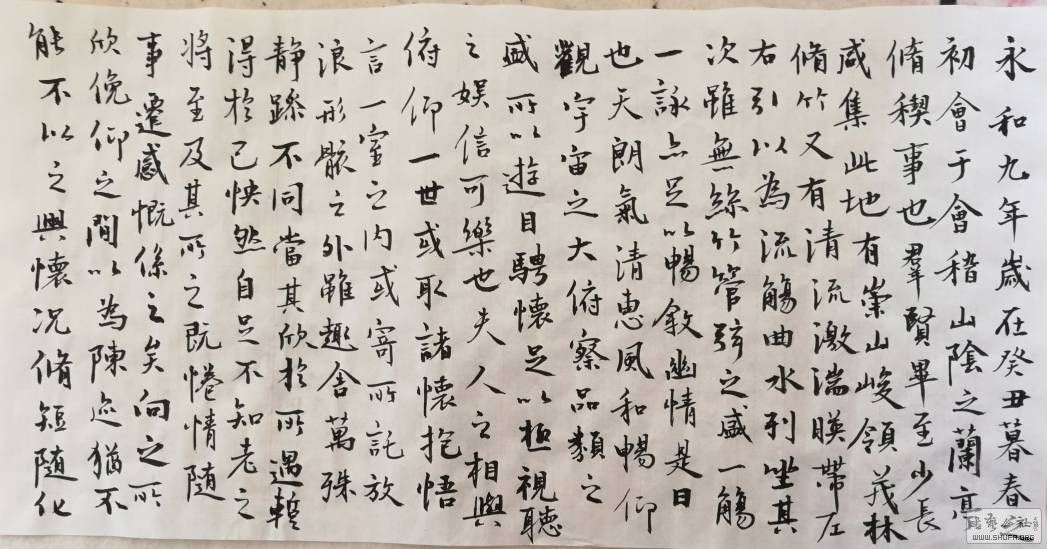 永和九年歲在癸丑暮春之
初會于會稽山陰之蘭亭
脩稧事也羣賢畢至少長
咸集此地有崇山峻領茂林
脩竹又有清流激湍暎帶左
右引以為流觴曲水列坐其
次雖無絲竹管弦之盛一觴
一詠亦足以暢敘幽情是日
也天朗氣清惠風和暢仰
觀宇宙之大俯察品類之
盛所以遊目騁懷足以極視聽
之娛信可樂也夫人之相與
俯仰一世或取諸懷抱悟
言一室之內或寄所託放
浪形骸之外雖趣舍萬殊
靜躁不同當其欣於所遇蹔
得於己怏然自足不知老之
將至及其所之既惓情隨
事遷感慨係之矣向之所
欣俛仰之間以為陳迹猶不
能不以之興懷況脩短隨化
WWW.SHUFA.ORG